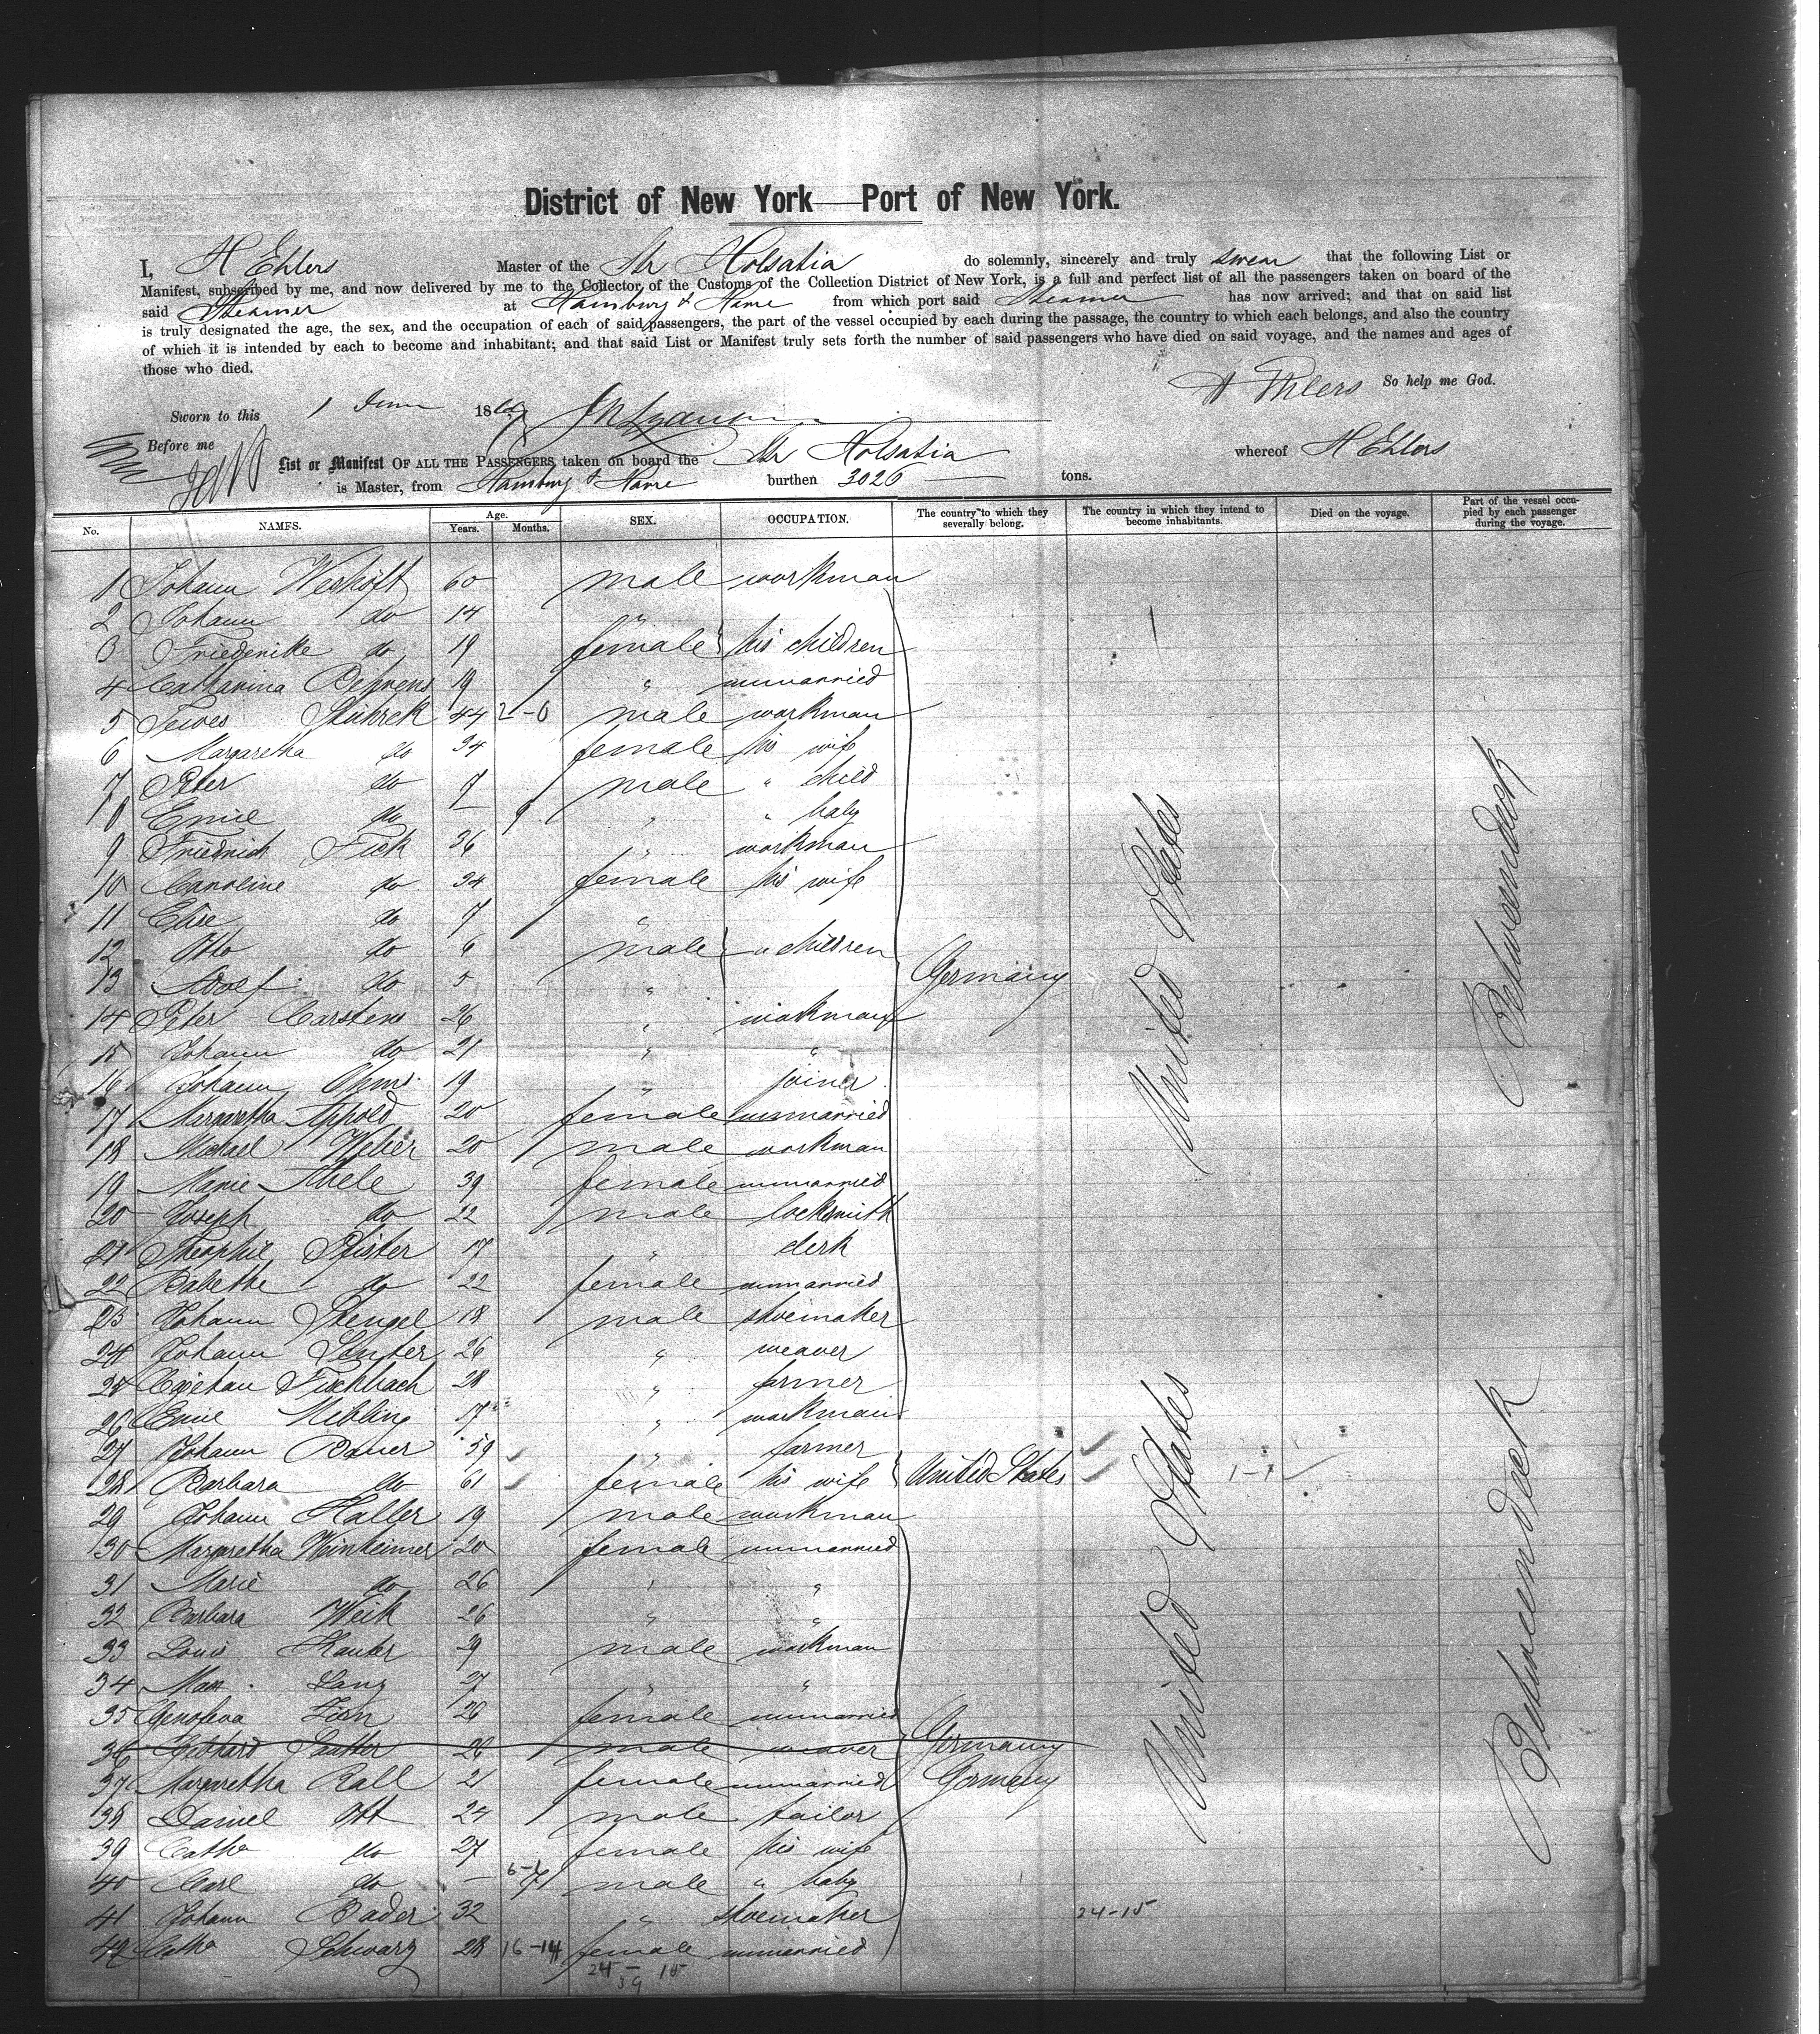 District of New York—Port of New York.
I, H Ehlers Master of the Str Holsatia do solemnly, sincerely and truly swear that the following List or
Manifest, subscribed by me, and now delivered by me to the Collector of the Customs of the Collection District of New York, is a full and perfect list of all the passengers taken on board of the
said Steamer at Hamburg & Havre from which port said Steamer has now arrived; and that on said list
is truly designated the age, the sex, and the occupation of each of said passengers, the part of the vessel occupied by each during the passage, the country to which each belongs, and also the country
of which it is intended by each to become and inhabitant; and that said List or Manifest truly sets forth the number of said passengers who have died on said voyage, and the names and ages of
those who died.
H Ehlers So help me God.
Sworn to this 1 June 1869
Before me
List or Manifest OF ALL THE PASSENGERS taken on board the Str Holsatia whereof H Ehlers
is Master, from Hamburg & Havre burthen 3026 tons.
No. NAMES. Age. Years. Months. SEX. OCCUPATION. The country to which they severally belong. The country in which they intend to become inhabitants. Died on the voyage. Part of the vessel occupied by each passenger during the voyage.
1 Johann 60 male workman
2 Johann do 14 "
3 Friederike do 19 female his children
4 Catharina Behrens 19 " unmarried
5 44 2-6 male workman
6 Margaretha do 34 female his wife
7 Peter do 7 male " child
8 Emil do — 9 " " baby
9 Friedrich Fick 36 " workman
10 Caroline do 34 female his wife
11 Elise do 7 "
12 Otto do 6 male " children
13 Adolf do 5 " Germany
14 Peter Carstens 26 " workman
15 Johann do 21 " "
16 Johann Ohms 19 " joiner
17 Margaretha Appold 20 female unmarried
18 Michael Weber 20 male workman
19 Marie Thele 39 female unmarried
20 Joseph do 22 male locksmith
21 Theophil Pfister 17 " clerk
22 Babethe do 22 female unmarried
23 Johann Stengel 18 male shoemaker
24 Johann 26 " weaver
25 Fischbach 28 " farmer
26 Emil 17 " workman
27 Johann Bauer 59 " farmer
28 Barbara do 61 female his wife United States 1-1
29 Johann Haller 19 male workman
30 Margaretha Weinheimer 20 female unmarried
31 Marie do 26 " "
32 Barbara Weik 26 " "
33 Louis 29 male workman
34 Max Lang 27 " "
35 Genofeva 26 female unmarried
36 Gebhard Sautter 26 male weaver Germany
37 Margaretha Rall 21 female unmarried Germany
38 Daniel Ott 24 male tailor
39 Catha do 27 female his wife
6-1
40 Carl do — 7 male " baby
41 Johann Bader 32 " shoemaker 24-15
42 Catha Schwarz 28 16-14 female unmarried
24-15
39
United States
United States
Betweendeck
Betweendeck